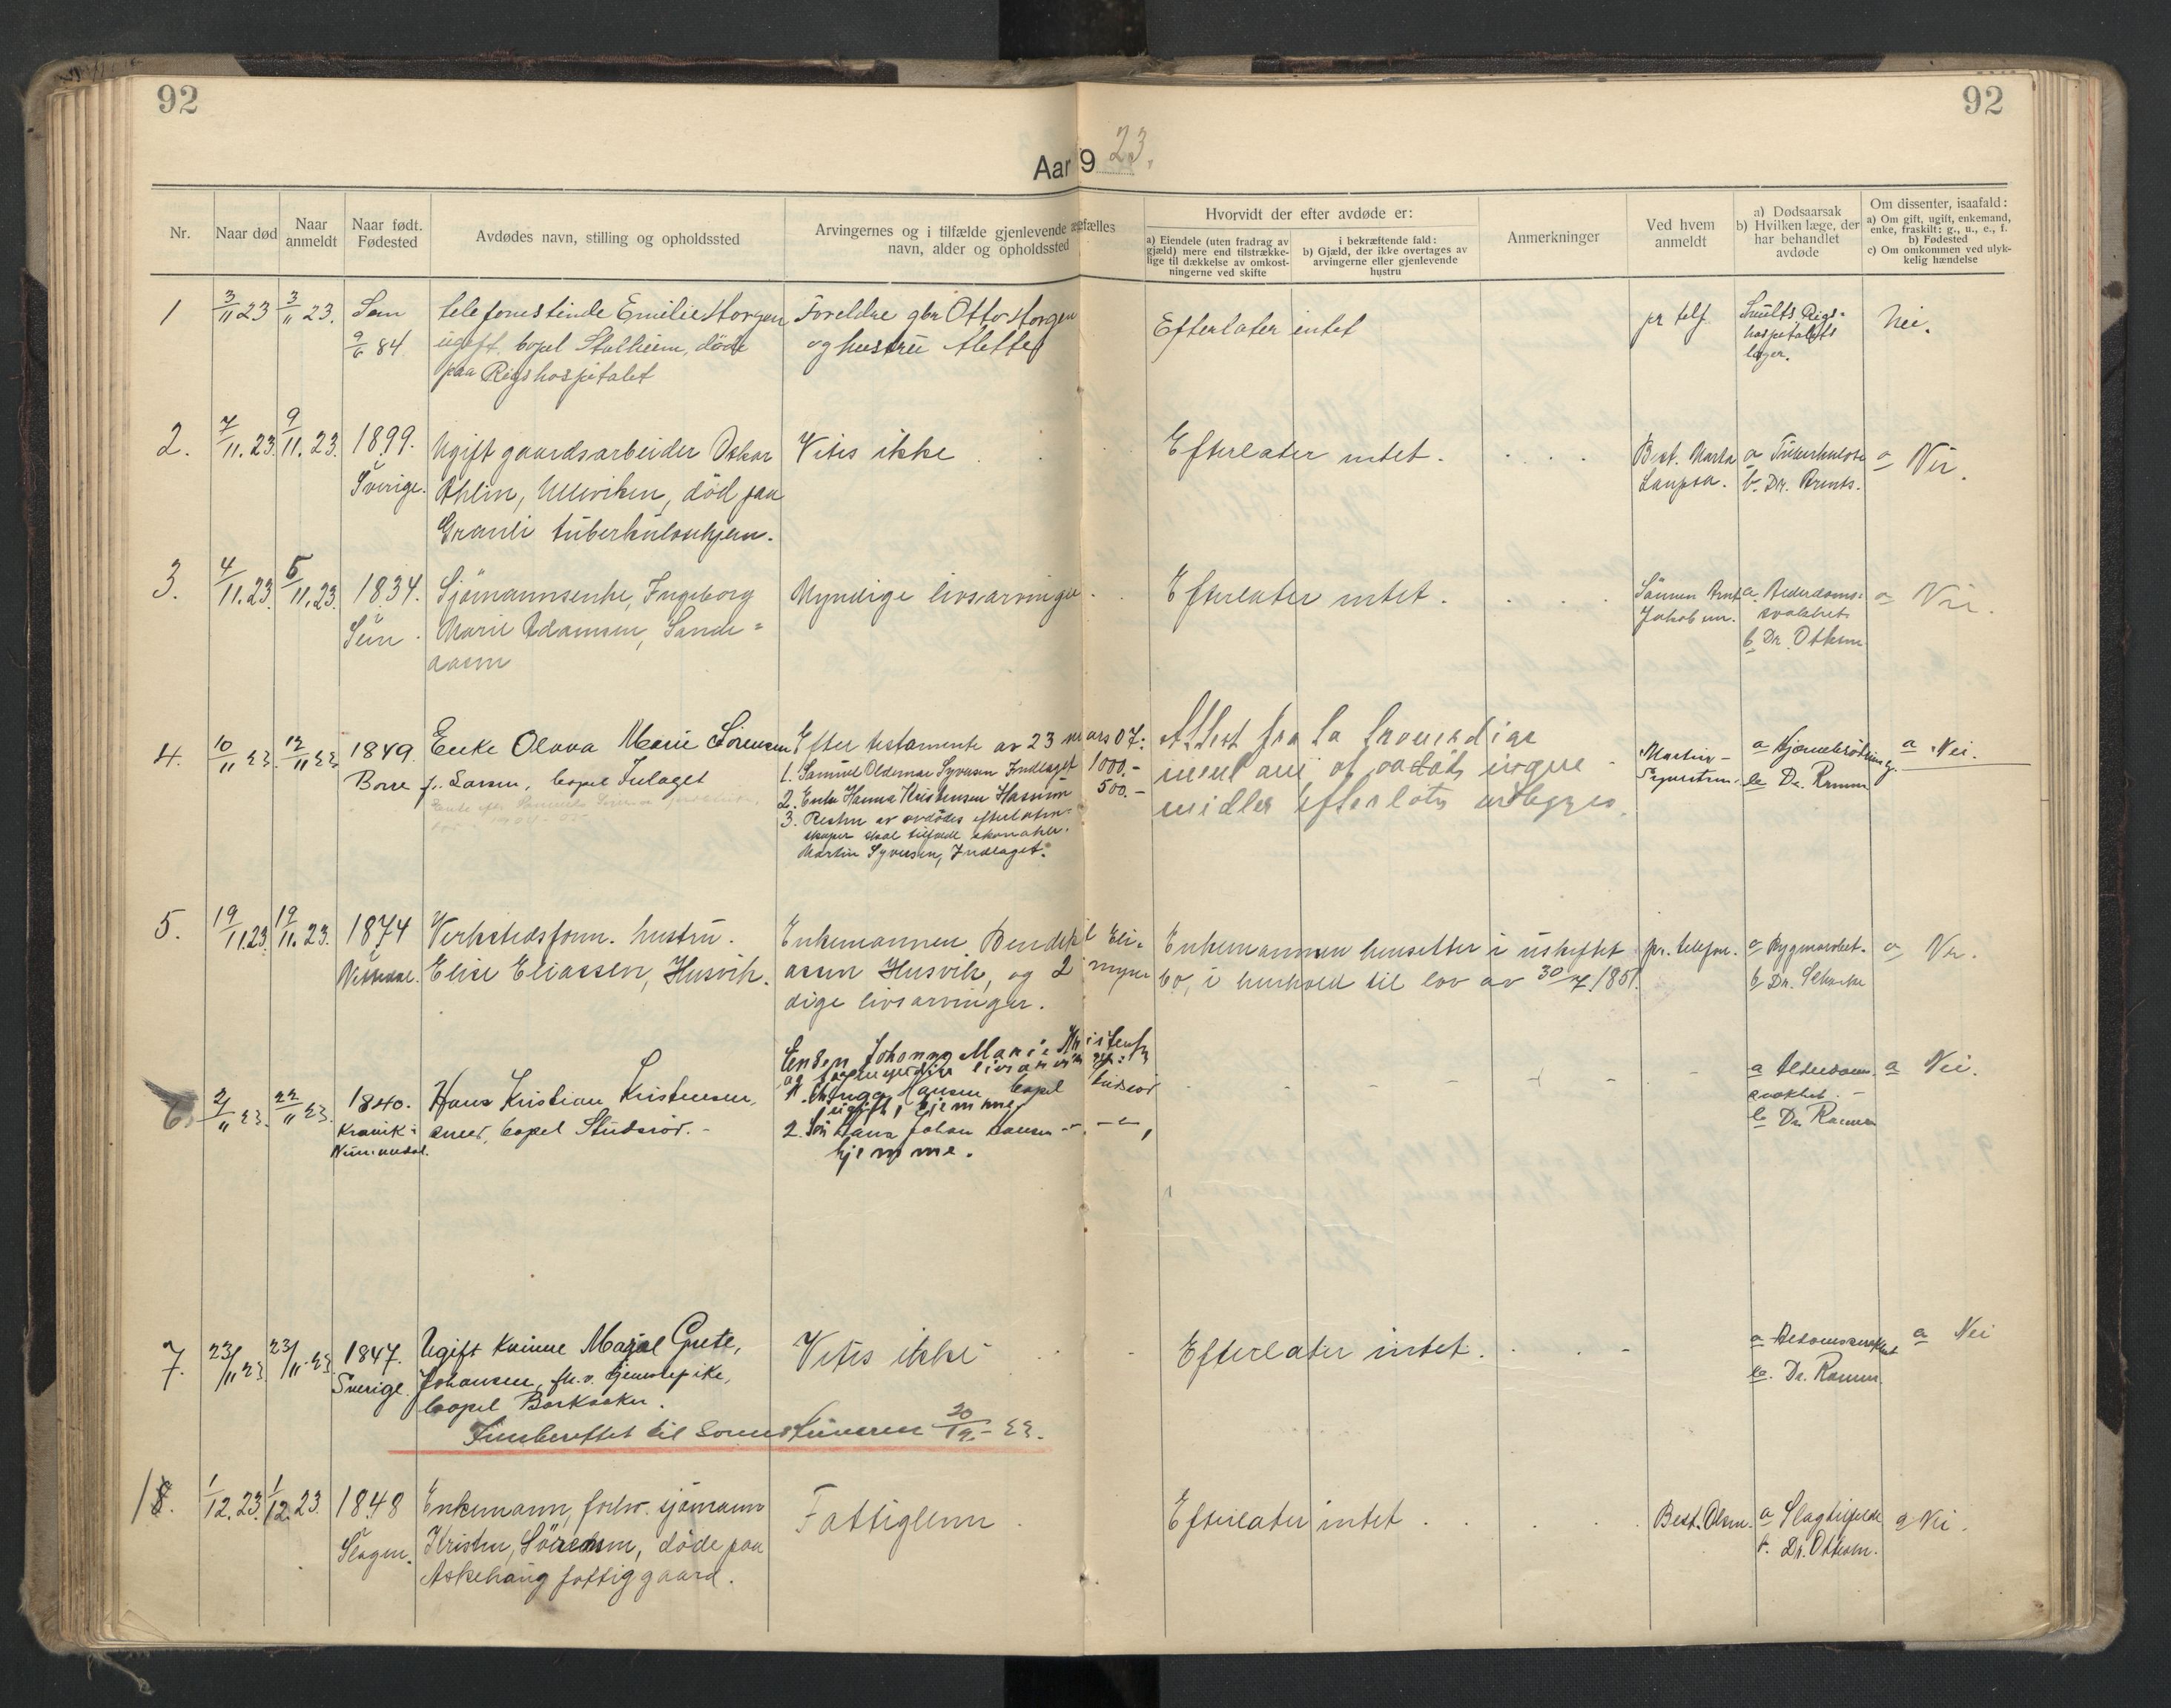 92
92
Aar 19 23.
Nr.
Naar død
Naar anmeldt
Naar født. Fødested
Avdødes navn, stilling og opholdssted
Arvingernes og i tilfælde gjenlevende ægtefælles navn, alder og opholdssted
Hvorvidt der efter avdøde er:
a) Eiendele (uten fradrag av gjæld) mere end tilstrækkelige til dækkelse av omkostningerne ved skifte
i bekræftende fald: b) Gjæld, der ikke overtages av arvingerne eller gjenlevende hustru
Anmerkninger
Ved hvem anmeldt
a) Dødsaarsak b) Hvilken læge, der har behandlet avdøde
Om dissenter, isaafald: a) Om gift, ugift, enkemand, enke, fraskilt: g., u., e., f. b) Fødested c) Om omkommen ved ulykkelig hændelse
1
3/11 23
3/11 23.
Sem
9/6 84
telefonistinde Emilie Horgen
ugift, bopel Stalheim, døde
paa Rigshospitalet
Foreldre gbr Otto Horgen
og hustru
Efterlater intet
pr telf.
Rigs-
hospitalets
læger.
Nei.
2.
7/11. 23.
9/11. 23.
1899.
Sverige.
Ugift gaardsarbeider Oskar
Ahlin, Ulleviken, død paa
Granli tuberkulosehjem.
Vites ikke
Efterlater intet.
Best. Marta
a Tuberkulose
b. Dr. Arents.
a Nei.
3.
4/11. 23.
5/11. 23.
1834.
Sem.
Sjømannsenke, Ingeborg
Marie Adamsen, Sande=
aasen
Myndige livsarvinger
Efterlater intet.
Sønnen Arnt
Jakobsen.
a. Alderdoms-
svakhet
b Dr. Ottesen
a Nei.
4.
10/11 23.
12/11 23
1849
Borre
Enke Olava Marie Sørensen
f. Larsen, bopel Inlaget
Efter testamente av 23 mars 07:
1. Samuel Oldemar Syversen Indlaget 1000.-
2. Enke Hanna Kristensen Hasum 500.-
3. Resten av avdødes efterladen-
skaper skal tilfalde
Martin Syversen, Indlaget.
Attest fra to troverdige
menn om at avdøde ingen
midler efterlot vedlegges.
Martin
Syvertsen.
b Dr. Ramm
a Nei.
5.
19/11. 23.
19/11. 23.
1874
Verkstedsform. hustru.
Elise Eliassen, Husvik.
Enkemannen Bendik Eli-
assen Husvik, og 2 myn-
dige livsarvinger.
Enkemannen hensetter i uskiftet
bo, i henhold til lov av 30/7. 1851.
pr. telefon.
a Rygmarvbet.
b Dr. Scharke
a Nei.
6.
22/11 23.
1840.
Hans Kristian Kristensen,
bopel Studsrød.-
Enken Johanne Marie Kristensen
og myndige livsarvinger:
1. Hansen bopel Studsrød
ugift, hjemme,
2. Søn Hans Johan Hansen
hjemme.
a Alderdoms-
svakhet.-
b Dr Ramm
a Nei.
7.
23/11 23
23/11 23
1847.
Sverige.
Ugift kvinne Maja Grete,
Johansen, fh.v. tjenestepike,
bopel Barkaaker.
Vites ikke
Efterlater intet.
b. Dr. Ramm.
a Nei
Innberettet til Sorenskriveren 20/12.- 23.
18.
1/12. 23.
1/12. 23.
1848
Slagen.
Enkemann, forhv. sjømann
Kristen Sørensen, døde paa
Askehaug fattiggaard.
Fattiglem
Efterlater intet
Best. Olsen.
a Slagtilfelde
b. Dr. Ottesen.
a Nei.